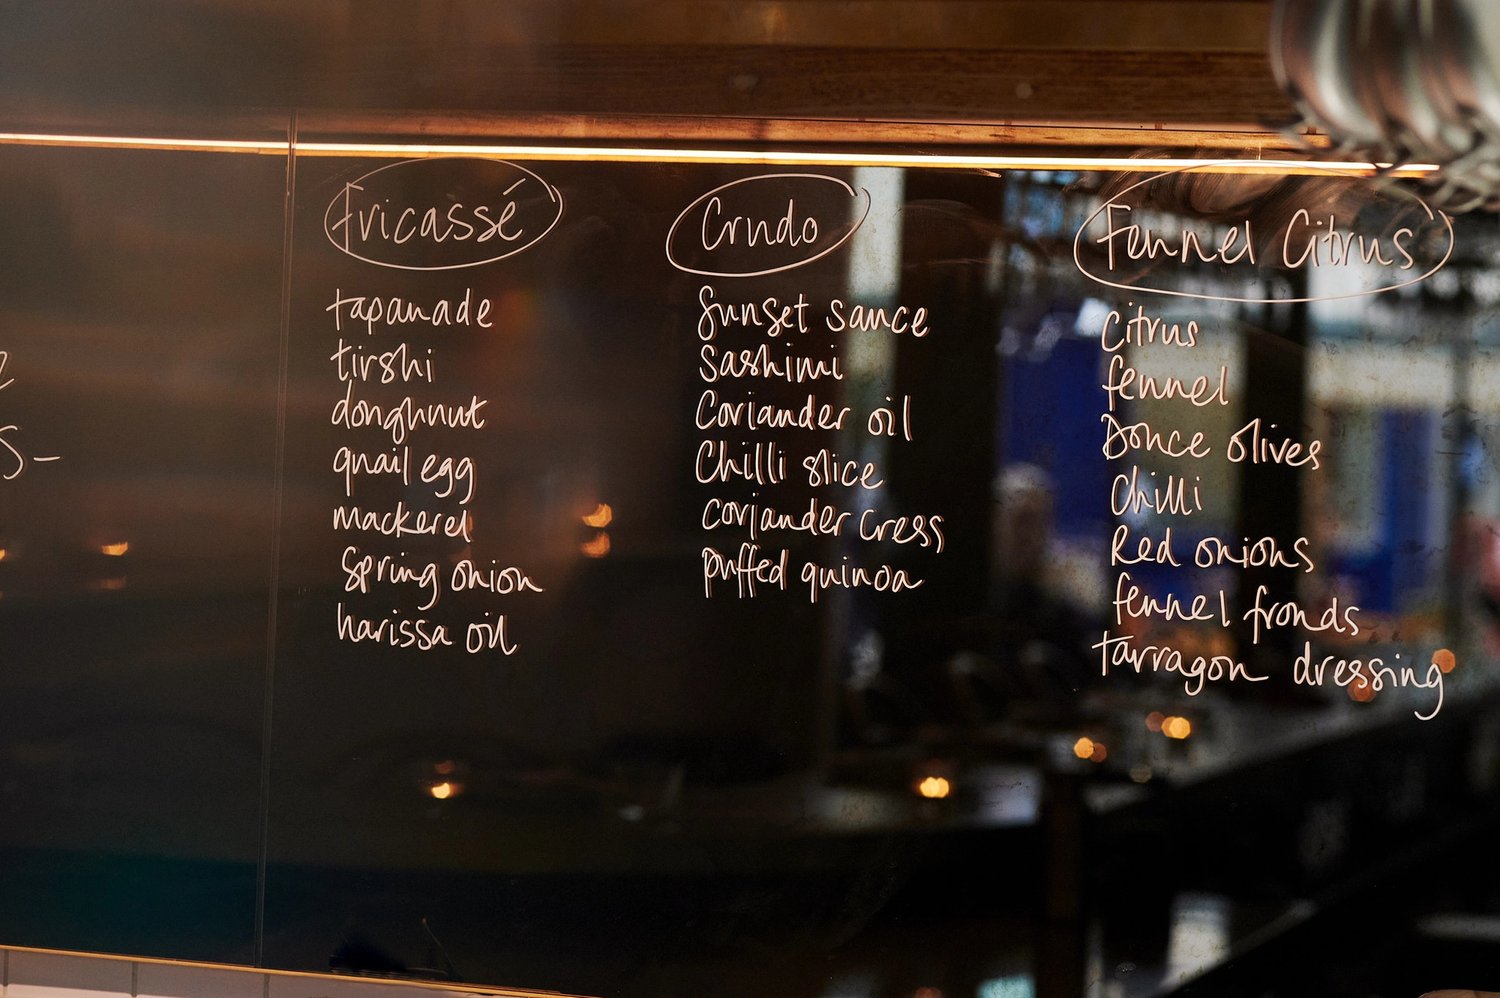 Fricassé
tapanade
tirshi
doughnut
quail egg
mackerel
Spring onion
harissa oil
Crudo
Sunset sauce
Sashimi
Coriander oil
Chilli slice
Coriander cress
puffed quinoa
Fennel Citrus
Citrus
fennel
Douce olives
Chilli
Red onions
fennel fronds
tarragon dressing